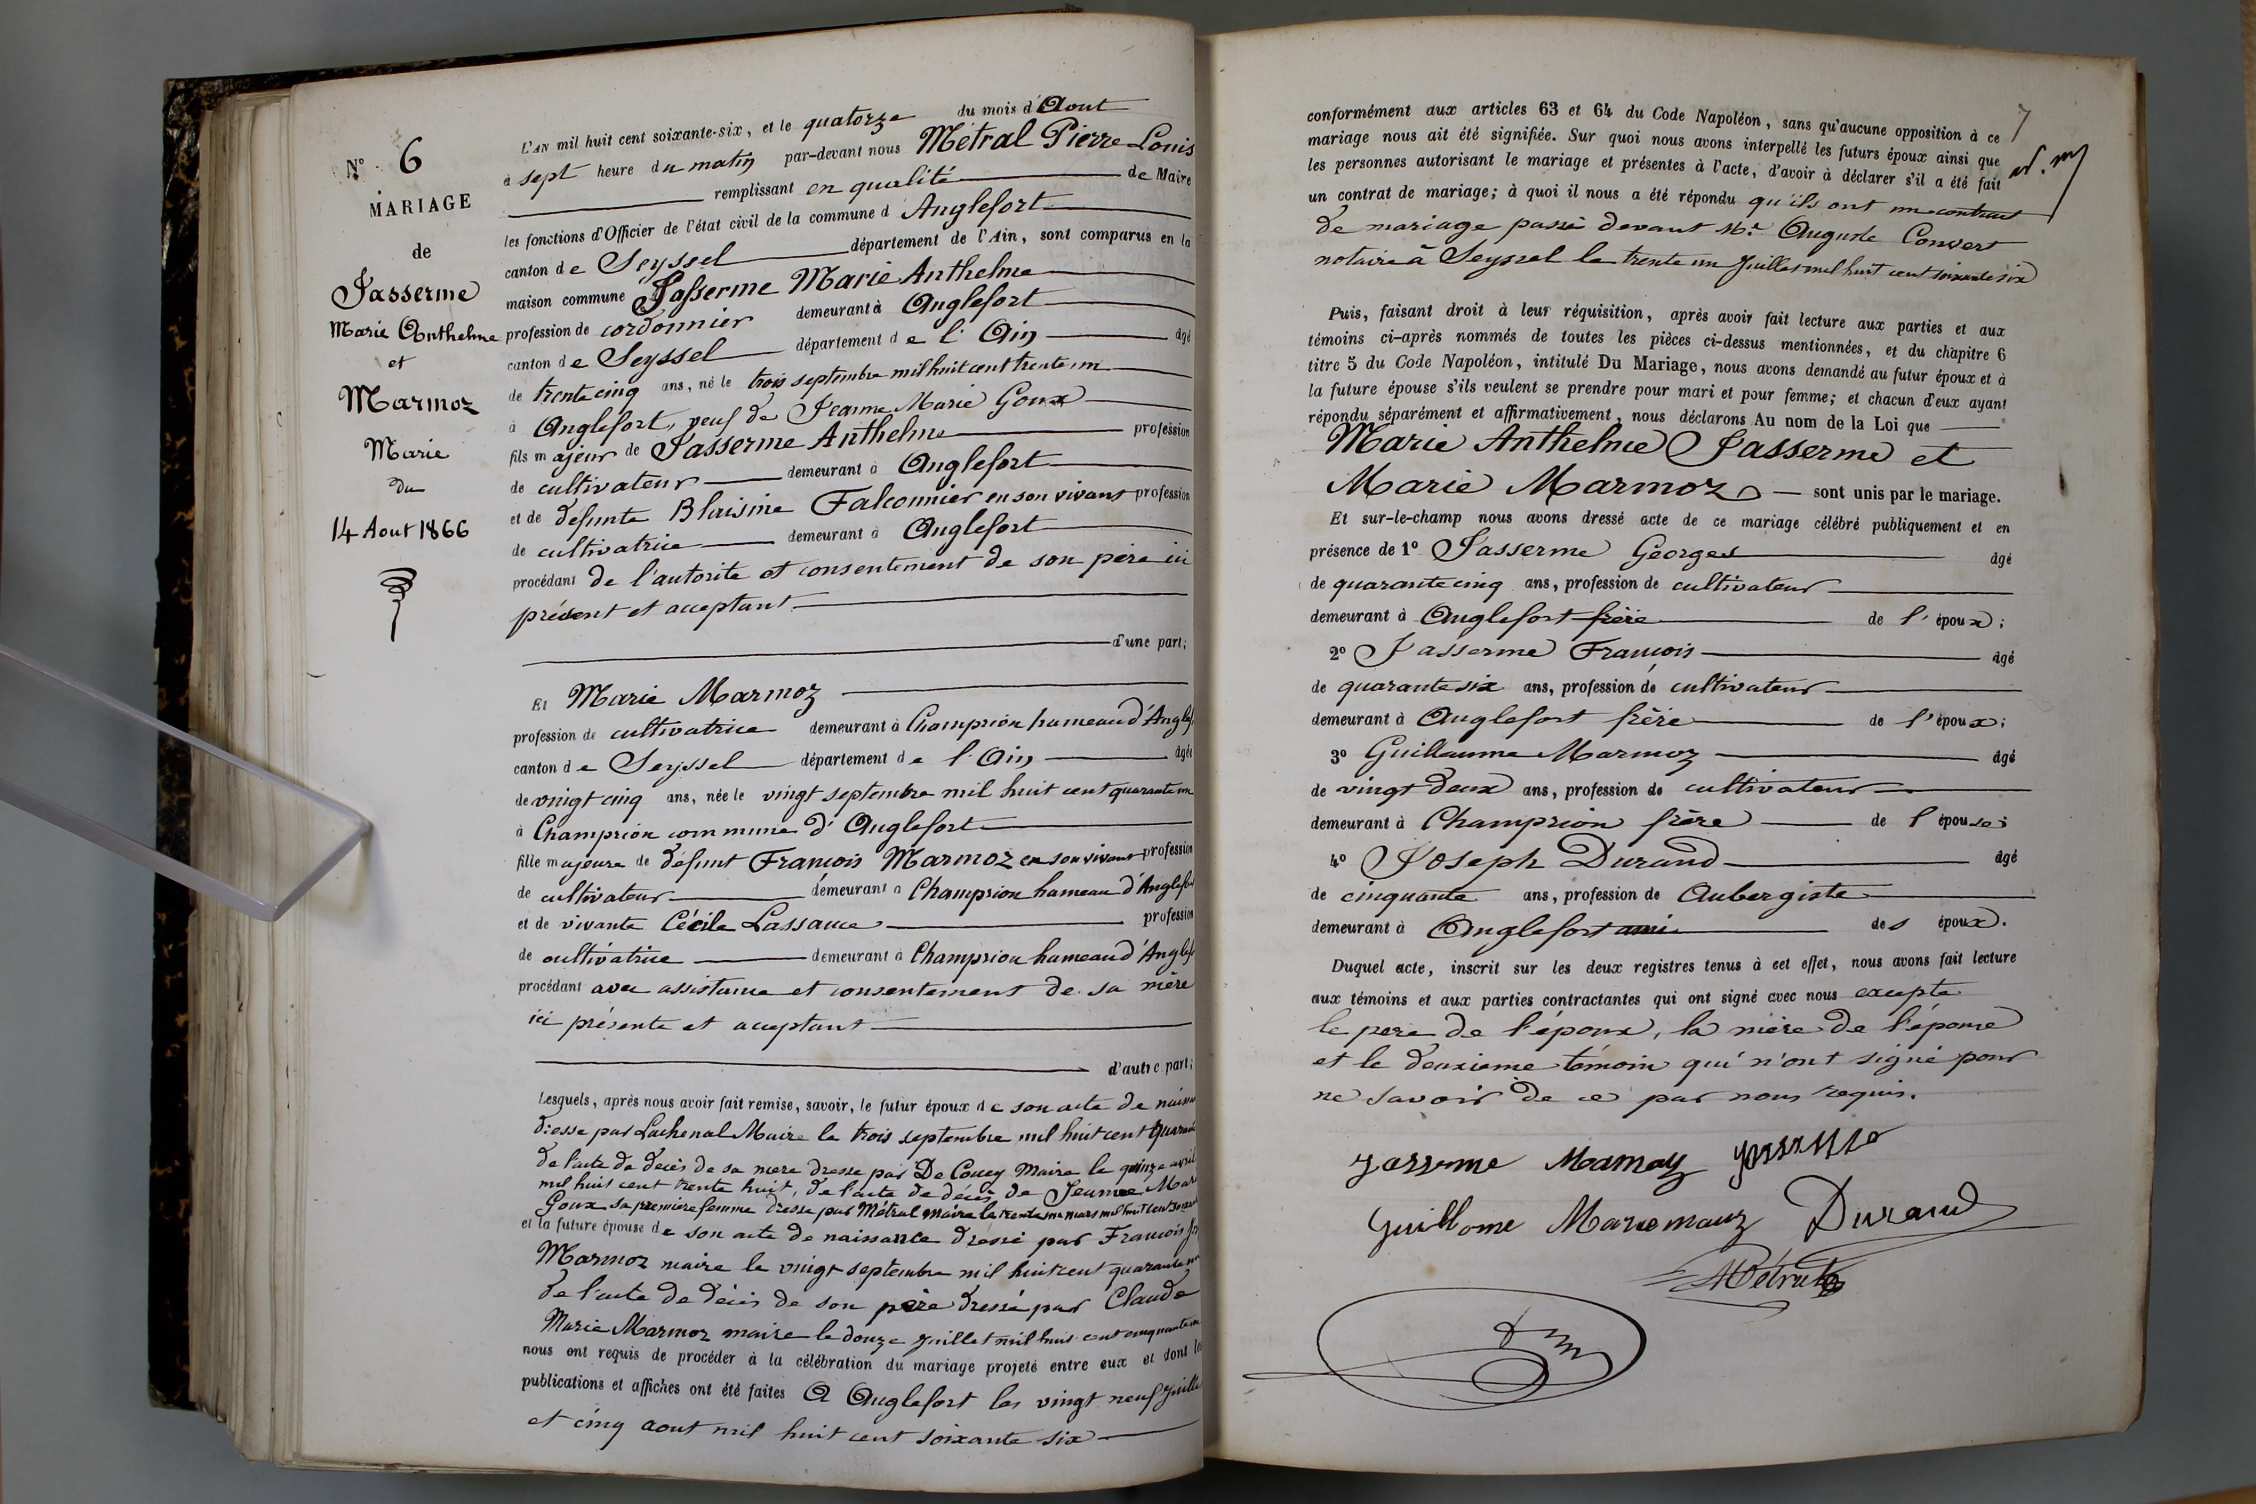 N° 6
MARIAGE
de
Jasserme
Marie Anthelme
et
Marmoz
Marie
du
14 Aout 1866
L'AN mil huit cent soixante-six, et le quatorze du mois d'Aout
à sept heure du matin par-devant nous Métral Pierre Louis
remplissant en qualité de Maire
les fonctions d'Officier de l'état civil de la commune d'Anglefort
canton de Seyssel département de l'Ain, sont comparus en la
maison commune Jasserme Marie Anthelme
profession de cordonnier demeurant à Anglefort
canton de Seyssel département de l'Ain âgé
de trente cinq ans, né le trois septembre mil huit cent trente un
à Anglefort, veuf de Jeanne Marie Goux
fils majeur de Jasserme Anthelme profession
de cultivateur demeurant à Anglefort
et de defunte Blaisine Falconnier en son vivant profession
de cultivatrice demeurant à Anglefort
procédant de l'autorite et consentement de son père ici
présent et acceptant
d'une part;
Et Marie Marmoz
profession de cultivatrice demeurant à Champrion hameau d'Anglef
canton de Seyssel département de l'Ain âgée
de vingt cinq ans, née le vingt septembre mil huit cent quarante un
à Champrion commune d'Anglefort
fille majeure de défunt François Marmoz en son vivant profession
de cultivateur demeurant à Champrion hameau d'Anglefor
et de vivante Cécile Lassauce profession
de cultivatrice demeurant à Champrion hameau d'Anglef
procédant avec assistance et consentement de sa mère
ici présente et acceptant
d'autre part;
Lesquels, après nous avoir fait remise, savoir, le futur époux de son acte de naissa
dresse par Lachenal Maire le trois septembre mil huit cent
de l'acte de decès de sa mere dresse par De Coucy Maire le quinze avril
mil huit cent trente huit, de l'acte de décès de Jeanne Mari
Goux sa première femme dresse par Métral maire le trente un mars mil huit cent
et la future épouse de son acte de naissance dressé par François
Marmoz maire le vingt septembre mil huit cent quarante un
de l'acte de décès de son père dressé par Claude
Marie Marmoz maire le douze juillet mil huit cent cinquante
nous ont requis de procéder à la célébration du mariage projeté entre eux et dont les
publications et affiches ont été faites A Anglefort les vingt neuf juille
et cinq aout mil huit cent soixante six
7
conformément aux articles 63 et 64 du Code Napoléon, sans qu'aucune opposition à ce
mariage nous ait été signifiée. Sur quoi nous avons interpellé les futurs époux ainsi que
les personnes autorisant le mariage et présentes à l'acte, d'avoir à déclarer s'il a été fait
un contrat de mariage; à quoi il nous a été répondu qu'ils ont un contract
de mariage passé devant Me Auguste Convert
notaire à Seyssel le trente un Juillet mil huit cent soixante six
Puis, faisant droit à leur réquisition, après avoir fait lecture aux parties et aux
témoins ci-après nommés de toutes les pièces ci-dessus mentionnées, et du chapitre 6
titre 5 du Code Napoléon, intitulé Du Mariage, nous avons demandé au futur époux et à
la future épouse s'ils veulent se prendre pour mari et pour femme; et chacun d'eux ayant
répondu séparément et affirmativement, nous déclarons Au nom de la Loi que
Marie Anthelme Jasserme et
Marie Marmoz sont unis par le mariage.
Et sur-le-champ nous avons dressé acte de ce mariage célébré publiquement et en
présence de 1° Jasserme Georges âgé
de quarante cinq ans, profession de cultivateur
demeurant à Anglefort frère de l'époux;
2° Jasserme François âgé
de quarante six ans, profession de cultivateur
demeurant à Anglefort frère de l'époux;
3° Guillaume Marmoz âgé
de vingt deux ans, profession de cultivateur
demeurant à Champrion frère de l'épouse;
4° Joseph Durand âgé
de cinquante ans, profession de Aubergiste
demeurant à Anglefort ami des époux.
Duquel acte, inscrit sur les deux registres tenus à cet effet, nous avons fait lecture
aux témoins et aux parties contractantes qui ont signé avec nous excepte
le pere de l'époux, la mère de l'épouse
et le deuxieme témoin qui n'ont signé pour
ne savoir de ce par nous requis.
Jasserme Mamoz
Guillome Maremauz Durand
Métral